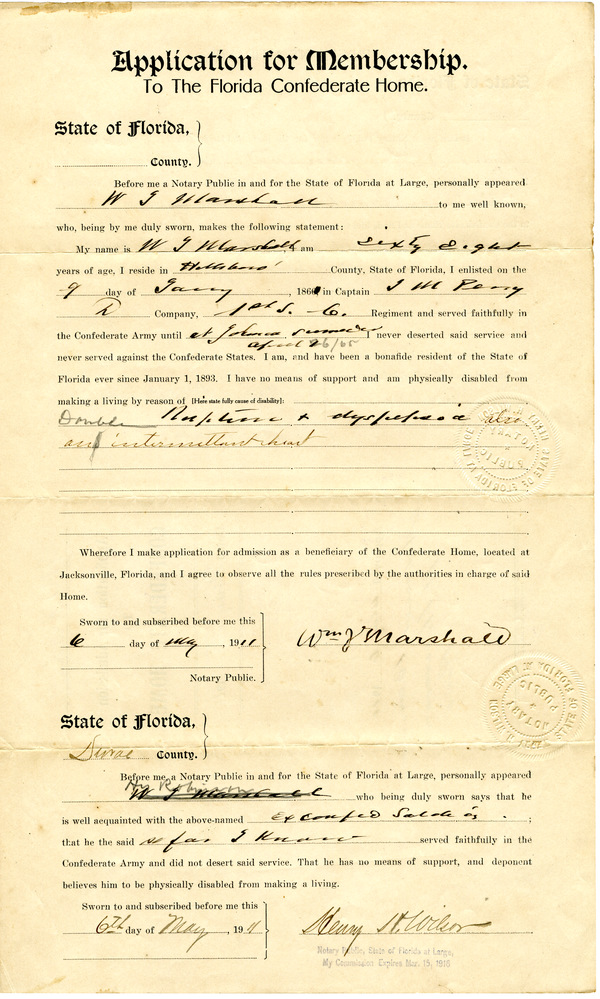 Application for Membership.
To The Florida Confederate Home.
State of Florida,
County.
Before me a Notary Public in and for the State of Florida at Large, personally appeared
W J Marshall to me well known,
who, being by me duly sworn, makes the following statement:
My name is W J Marshall, I am Sixty Eight
years of age, I reside in Hillsboro' County, State of Florida, I enlisted on the
9 day of Janry, 1861 in Captain J M Perry
D Company, 1st S. C. Regiment and served faithfully in
the Confederate Army until at I never deserted said service and
April 26/65
never served against the Confederate States. I am, and have been a bonafide resident of the State of
Florida ever since January 1, 1893. I have no means of support and am physically disabled from
making a living by reason of [Here state fully cause of disability]:
Double Rupture & dyspepsia also
an intermittant heart
Wherefore I make application for admission as a beneficiary of the Confederate Home, located at
Jacksonville, Florida, and I agree to observe all the rules prescribed by the authorities in charge of said
Home.
Sworn to and subscribed before me this
6 day of May, 1911
Wm J Marshall
Notary Public.
State of Florida,
Duval County.
Before me, a Notary Public in and for the State of Florida at Large, personally appeared
W J Marshall who being duly sworn says that he
is well acquainted with the above-named Ex Confed Soldier;
that he the said so far I Know served faithfully in the
Confederate Army and did not desert said service. That he has no means of support, and deponent
believes him to be physically disabled from making a living.
Sworn to and subscribed before me this
6th day of May, 1911
Henry H. Wilson
Notary Public, State of Florida at Large,
My Commission Expires Mar. 15, 1915